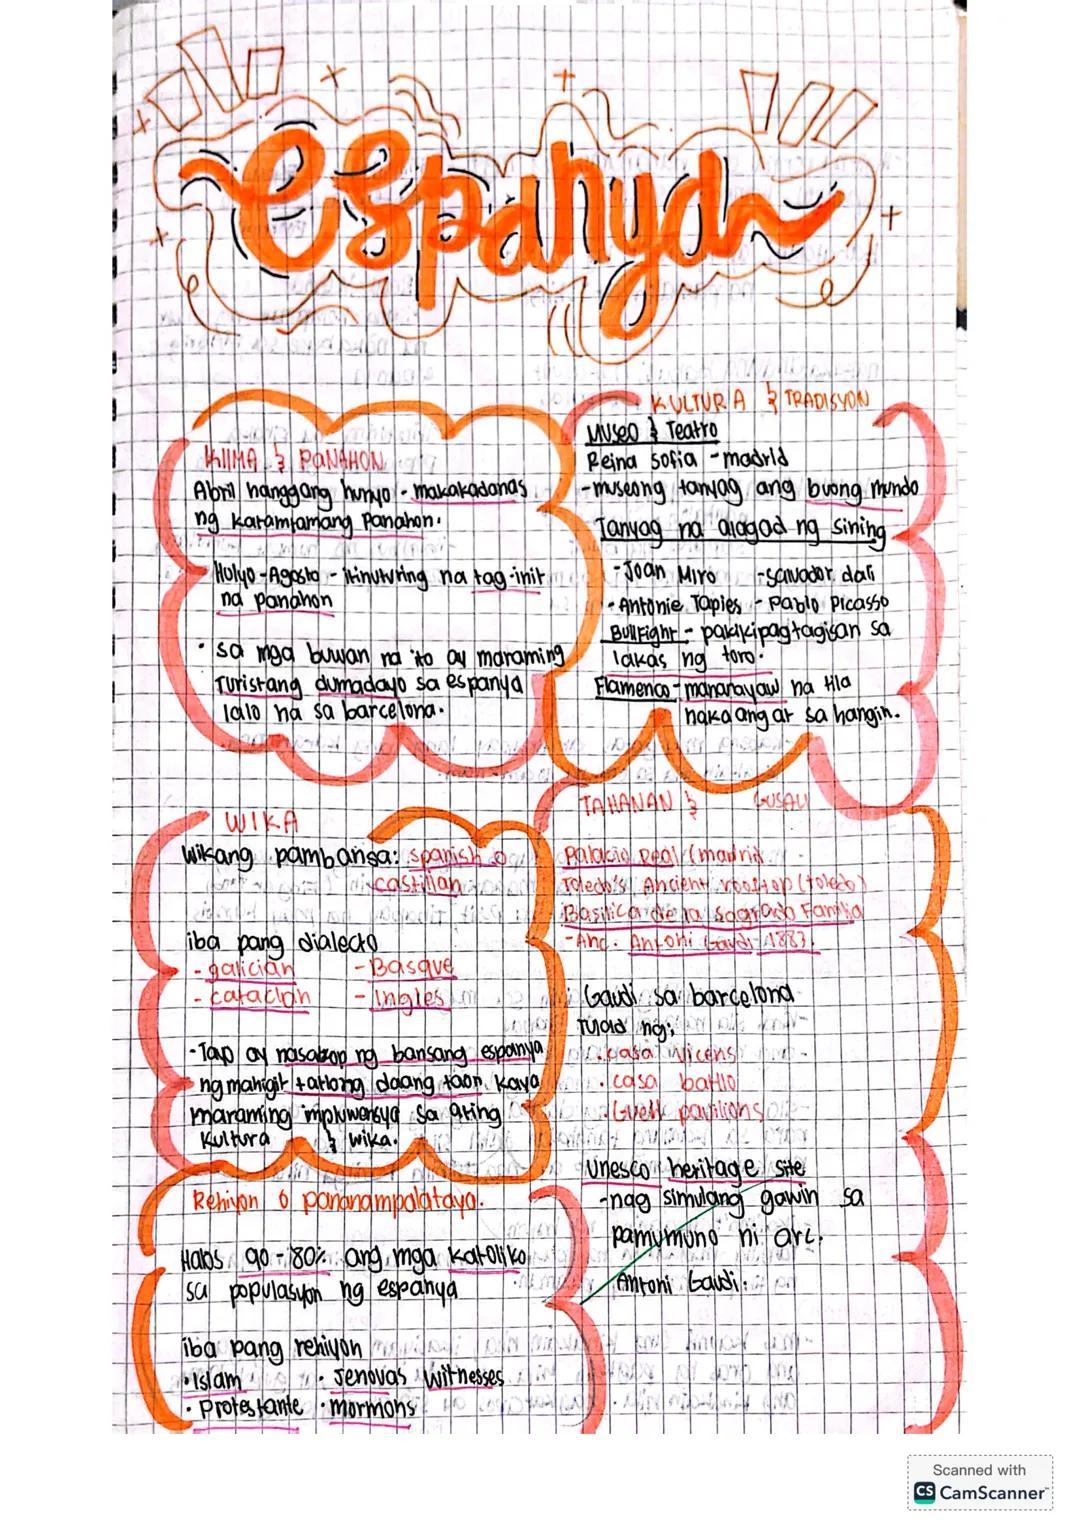 espanya
KlIMA & PANAHON
Abril hanggang hunyo - makakadanas
ng katamtamang Panahon.
Hulyo - Agosto - itinuturing na tag-init
na panahon
• sa mga buwan na ito ay maraming
Turistang dumadayo sa espanya
lalo na sa barcelona.
KULTURA & TRADISYON
Museo & Teatro
Reina Sofia - madrid
- museong tanyag ang buong mundo
Tanyag na alagad ng sining
- Joan Miro - salvador dali
- Antonie Tapies - Pablo Picasso
BullFight - pakikipagtagisan sa
lakas ng toro.
Flamenco - mananayaw na tila
nakaangat sa hangin.
WIKA
wikang pambansa: spanish o
castillan
iba pang dialecto
- galician - Basque
- cataclan - Ingles
- Tayo ay nasakop ng bansang espanya
ng mahigit tatlong daang taon kaya
maraming impluwensya sa ating
kultura & wika.
TAHANAN & GUSALI
Palacio Real (madrid
Toledo's Ancient rooftop (toledo)
Basilica de la sagrado Familia
- Anc. Antoni Gaudi 1883.
Gaudi sa barcelona
Tulad ng;
• casa Vicens
• casa batllo
• Guell pavilions
unesco heritage site
- nag simulang gawin sa
pamumuno ni arc.
Antoni Gaudi.
Rehiyon o pananampalataya.
Halos 90 - 80% ang mga katoliko
sa populasyon ng espanya
iba pang rehiyon
• Islam • Jehovas witnesses
• Protestante • mormons
Scanned with
CS CamScanner